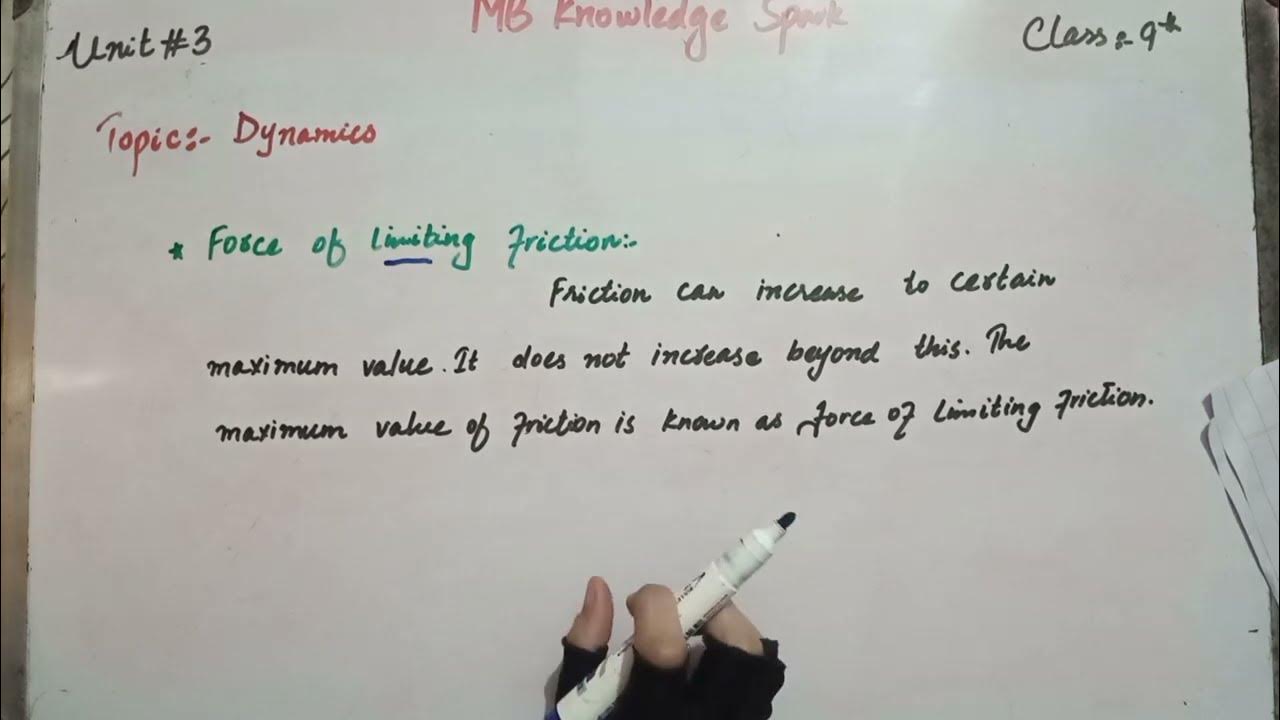 MB Knowledge Spark
Unit #3
Class:- 9th
Topic:- Dynamics
* Force of Limiting Friction:-
Friction can increase to certain
maximum value. It does not increase beyond this. The
maximum value of Friction is known as force of Limiting Friction.